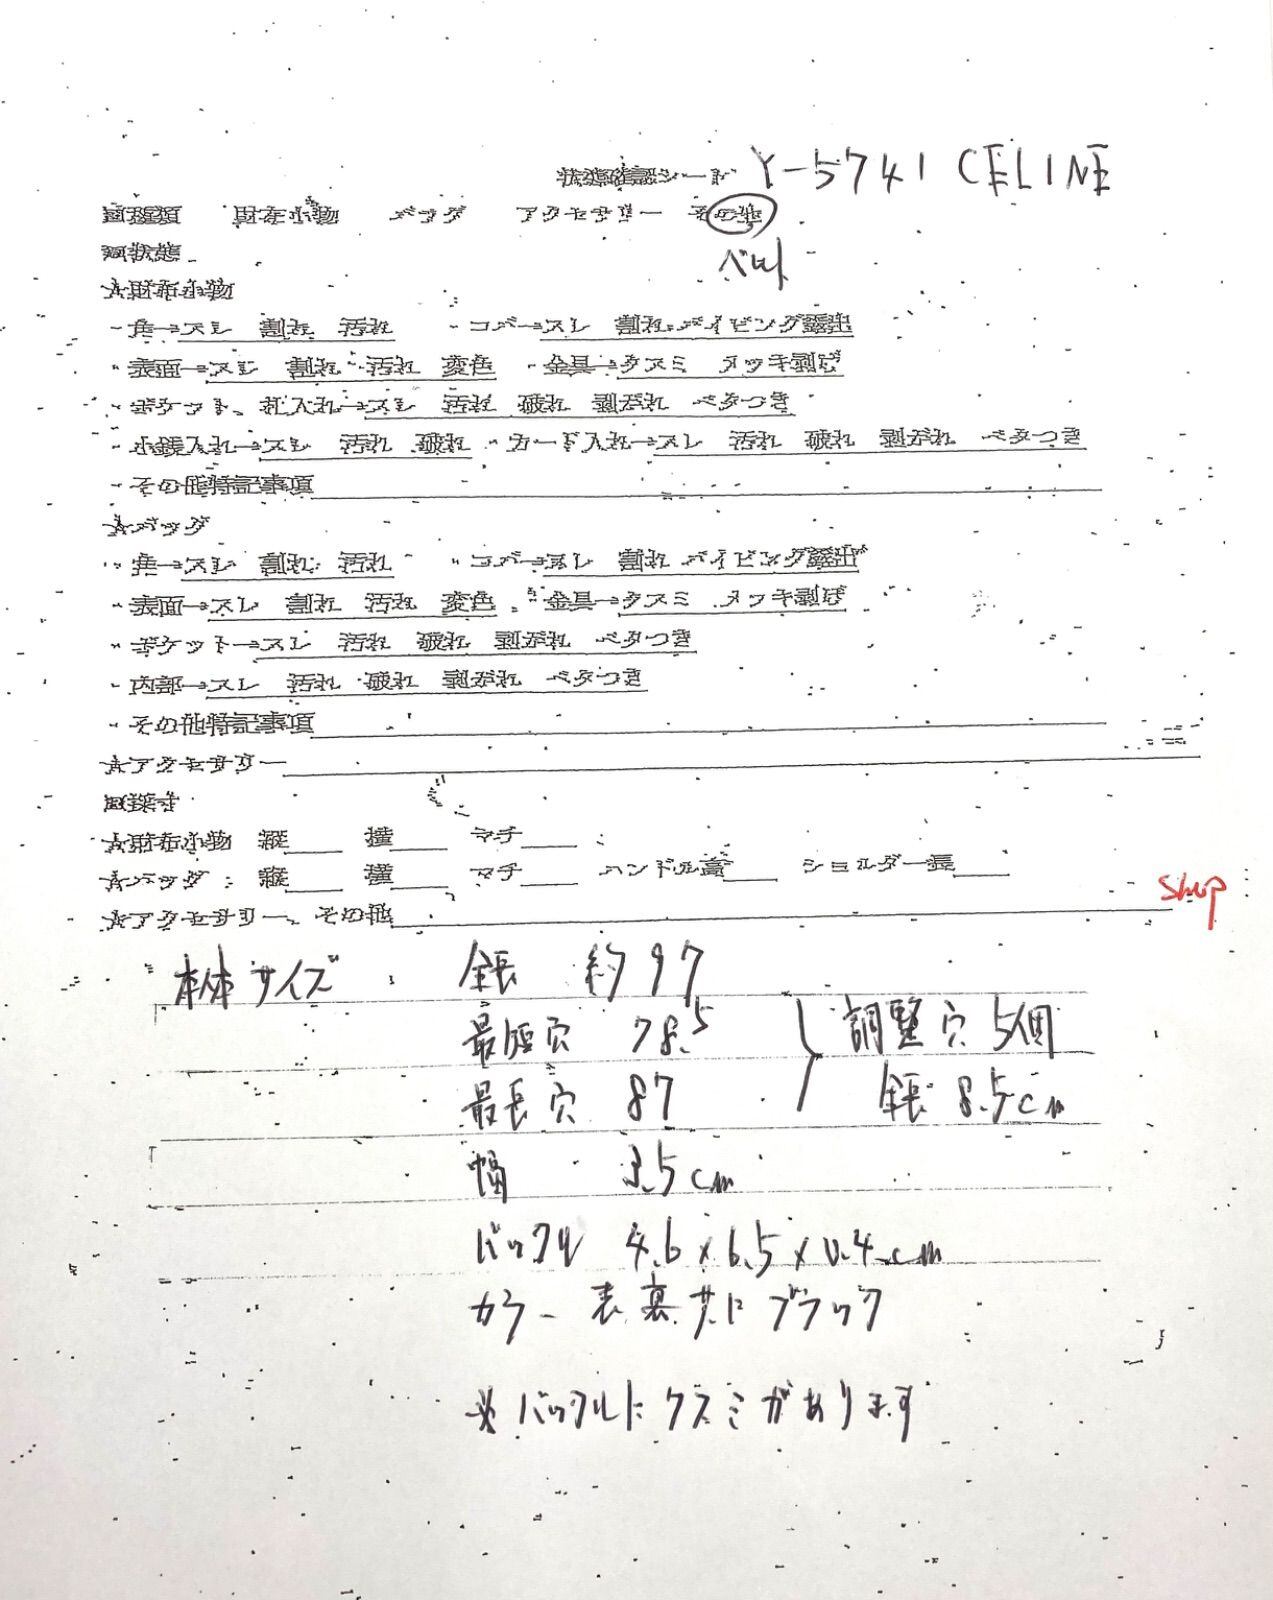 状態確認シート Y-5741 CELINE
財布小物 バッグ アクセサリー その他
■状態 ベルト
★財布小物
・角→スレ 割れ 汚れ ・コバ→スレ 割れ パイピング露出
・表面→スレ 割れ 汚れ 変色 ・金具→クスミ メッキ剥げ
・ポケット、札入れ→スレ 汚れ 破れ 剥がれ ベタつき
・小銭入れ→スレ 汚れ 破れ ・カード入れ→スレ 汚れ 破れ 剥がれ ベタつき
・その他特記事項
★バッグ
・角→スレ 割れ 汚れ ・コバ→スレ 割れ パイピング露出
・表面→スレ 割れ 汚れ 変色 ・金具→クスミ メッキ剥げ
・ポケット→スレ 汚れ 破れ 剥がれ ベタつき
・内部→スレ 汚れ 破れ 剥がれ ベタつき
・その他特記事項
★アクセサリー
■採寸
★財布小物 縦 横 マチ
★バッグ: 縦 横 マチ ハンドル高 ショルダー長
★アクセサリー、その他 shop
本体サイズ 全長 約97
最短穴 78.5 調整穴 5個
最長穴 87 全長 8.5cm
幅 3.5cm
バックル 4.6×6.5×0.4cm
カラー 表裏共に ブラック
※バックルに クスミがあります